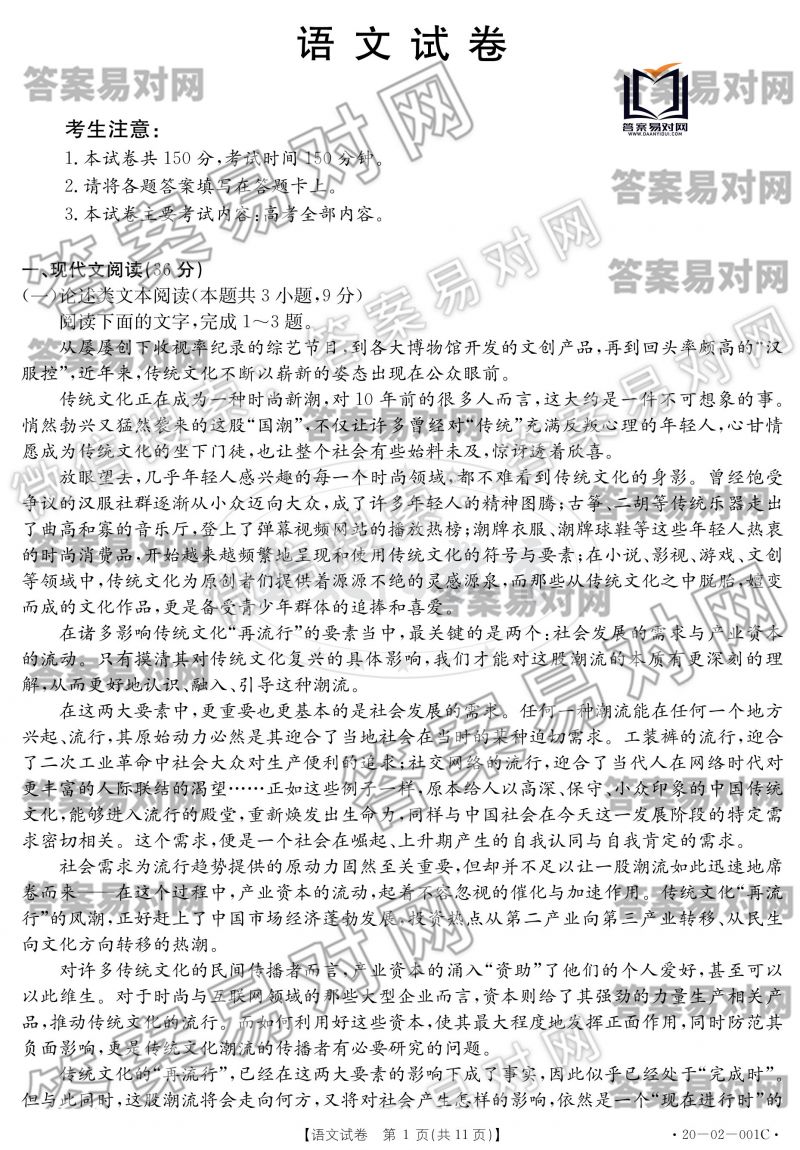 语文试卷
答案易对网
答案易对网
答案易对网
WWW.DAANYIDUI.COM
考生注意：
1.本试卷共150分,考试时间150分钟。
2.请将各题答案填写在答题卡上。
答案易对网
3.本试卷主要考试内容:高考全部内容。
一、现代文阅读(36分)
答案易对网
(一)论述类文本阅读(本题共3小题,9分)
阅读下面的文字,完成1～3题。
从屡屡创下收视率纪录的综艺节目,到各大博物馆开发的文创产品,再到回头率颇高的“汉
服控”,近年来,传统文化不断以崭新的姿态出现在公众眼前。
传统文化正在成为一种时尚新潮,对10年前的很多人而言,这大约是一件不可想象的事。
悄然勃兴又猛然袭来的这股“国潮”,不仅让许多曾经对“传统”充满反叛心理的年轻人,心甘情
愿成为传统文化的坐下门徒,也让整个社会有些始料未及,惊讶透着欣喜。
放眼望去,几乎年轻人感兴趣的每一个时尚领域,都不难看到传统文化的身影。曾经饱受
争议的汉服社群逐渐从小众迈向大众,成了许多年轻人的精神图腾;古筝、二胡等传统乐器走出
了曲高和寡的音乐厅,登上了弹幕视频网站的播放热榜;潮牌衣服、潮牌球鞋等这些年轻人热衷
的时尚消费品,开始越来越频繁地呈现和使用传统文化的符号与要素;在小说、影视、游戏、文创
等领域中,传统文化为原创者们提供着源源不绝的灵感源泉,而那些从传统文化之中脱胎、嬗变
而成的文化作品,更是备受青少年群体的追捧和喜爱。
在诸多影响传统文化“再流行”的要素当中,最关键的是两个:社会发展的需求与产业资本
的流动。只有摸清其对传统文化复兴的具体影响,我们才能对这股潮流的本质有更深刻的理
解,从而更好地认识、融入、引导这种潮流。
在这两大要素中,更重要也更基本的是社会发展的需求。任何一种潮流能在任何一个地方
兴起、流行,其原始动力必然是其迎合了当地社会在当时的某种迫切需求。工装裤的流行,迎合
了二次工业革命中社会大众对生产便利的追求;社交网络的流行,迎合了当代人在网络时代对
更丰富的人际联结的渴望……正如这些例子一样,原本给人以高深、保守、小众印象的中国传统
文化,能够进入流行的殿堂,重新焕发出生命力,同样与中国社会在今天这一发展阶段的特定需
求密切相关。这个需求,便是一个社会在崛起、上升期产生的自我认同与自我肯定的需求。
社会需求为流行趋势提供的原动力固然至关重要,但却并不足以让一股潮流如此迅速地席
卷而来——在这个过程中,产业资本的流动,起着不容忽视的催化与加速作用。传统文化“再流
行”的风潮,正好赶上了中国市场经济蓬勃发展,投资热点从第二产业向第三产业转移、从民生
向文化方向转移的热潮。
对许多传统文化的民间传播者而言,产业资本的涌入“资助”了他们的个人爱好,甚至可以
以此维生。对于时尚与互联网领域的那些大型企业而言,资本则给了其强劲的力量生产相关产
品,推动传统文化的流行。而如何利用好这些资本,使其最大程度地发挥正面作用,同时防范其
负面影响,更是传统文化潮流的传播者有必要研究的问题。
传统文化的“再流行”,已经在这两大要素的影响下成了事实,因此似乎已经处于“完成时”。
但与此同时,这股潮流将会走向何方,又将对社会产生怎样的影响,依然是一个“现在进行时”的
【语文试卷 第1页(共11页)】
·20—02—001C·